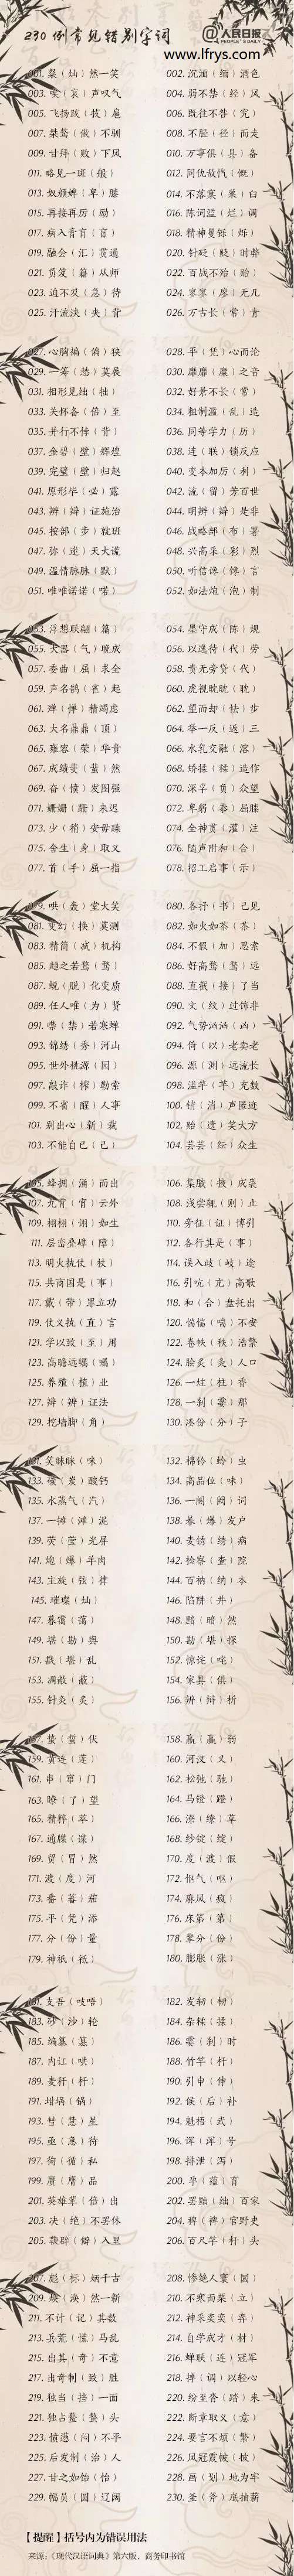 230例常见错别字词
@人民日报
PEOPLE'S DAILY
www.lfrys.com
001. 粲（灿）然一笑 002. 沉湎（缅）酒色
003. 唉（哀）声叹气 004. 弱不禁（经）风
005. 飞扬跋（拔）扈 006. 既往不咎（究）
007. 桀骜（傲）不驯 008. 不胫（径）而走
009. 甘拜（败）下风 010. 万事俱（具）备
011. 略见一斑（般） 012. 同仇敌忾（慨）
013. 奴颜婢（卑）膝 014. 不落窠（巢）臼
015. 再接再厉（励） 016. 陈词滥（烂）调
017. 病入膏肓（盲） 018. 精神矍铄（烁）
019. 融会（汇）贯通 020. 针砭（贬）时弊
021. 负笈（籍）从师 022. 百战不殆（贻）
023. 迫不及（急）待 024. 寥寥（廖）无几
025. 汗流浃（夹）背 026. 万古长（常）青
027. 心胸褊（偏）狭 028. 平（凭）心而论
029. 一筹（愁）莫展 030. 靡靡（糜）之音
031. 相形见绌（拙） 032. 好景不长（常）
033. 关怀备（倍）至 034. 粗制滥（乱）造
035. 并行不悖（背） 036. 同等学力（历）
037. 金碧（壁）辉煌 038. 连（联）锁反应
039. 完璧（壁）归赵 040. 变本加厉（利）
041. 原形毕（必）露 042. 流（留）芳百世
043. 辨（辩）证施治 044. 明辨（辩）是非
045. 按部（步）就班 046. 战略部（布）署
047. 弥（迷）天大谎 048. 兴高采（彩）烈
049. 温情脉脉（默） 050. 听信谗（馋）言
051. 唯唯诺诺（喏） 052. 如法炮（泡）制
053. 浮想联翩（篇） 054. 墨守成（陈）规
055. 大器（气）晚成 056. 以逸待（代）劳
057. 委曲（屈）求全 058. 责无旁贷（代）
059. 声名鹊（雀）起 060. 虎视眈眈（耽）
061. 殚（惮）精竭虑 062. 望而却（怯）步
063. 大名鼎鼎（顶） 064. 举一反（返）三
065. 雍容（荣）华贵 066. 水乳交融（溶）
067. 成绩斐（蜚）然 068. 矫揉（糅）造作
069. 奋（愤）发图强 070. 深孚（负）众望
071. 姗姗（跚）来迟 072. 卑躬（恭）屈膝
073. 少（稍）安毋躁 074. 全神贯（灌）注
075. 舍生（身）取义 076. 随声附和（合）
077. 首（手）屈一指 078. 招工启事（示）
079. 哄（轰）堂大笑 080. 各抒（书）己见
081. 变幻（换）莫测 082. 如火如荼（茶）
083. 精简（减）机构 084. 不假（加）思索
085. 趋之若鹜（骛） 086. 好高骛（鹜）远
087. 蜕（脱）化变质 088. 直截（接）了当
089. 任人唯（为）贤 090. 文（纹）过饰非
091. 噤（禁）若寒蝉 092. 气势汹汹（凶）
093. 锦绣（秀）河山 094. 倚（以）老卖老
095. 世外桃源（园） 096. 源（渊）远流长
097. 敲诈（榨）勒索 098. 滥竽（竿）充数
099. 不省（醒）人事 100. 销（消）声匿迹
101. 别出心（新）裁 102. 贻（遗）笑大方
103. 不能自已（己） 104. 芸芸（纭）众生
105. 蜂拥（涌）而出 106. 集腋（掖）成裘
107. 九霄（宵）云外 108. 浅尝辄（则）止
109. 栩栩（诩）如生 110. 旁征（证）博引
111. 层峦叠嶂（障） 112. 各行其是（事）
113. 明火执仗（杖） 114. 误入歧（岐）途
115. 共商国是（事） 116. 引吭（亢）高歌
117. 戴（带）罪立功 118. 和（合）盘托出
119. 仗义执（直）言 120. 惴惴（喘）不安
121. 学以致（至）用 122. 卷帙（秩）浩繁
123. 高瞻远瞩（嘱） 124. 脍炙（灸）人口
125. 养殖（植）业 126. 一炷（柱）香
127. 辩（辨）证法 128. 一刹（霎）那
129. 挖墙脚（角） 130. 凑份（分）子
131. 笑眯眯（咪） 132. 棉铃（蛉）虫
133. 碳（炭）酸钙 134. 高品位（味）
135. 水蒸气（汽） 136. 一阕（阙）词
137. 一摊（滩）泥 138. 暴（爆）发户
139. 荧（莹）光屏 140. 麦锈（绣）病
141. 炮（爆）羊肉 142. 检察（查）院
143. 主旋（弦）律 144. 百衲（纳）本
145. 璀璨（灿） 146. 陷阱（井）
147. 暮霭（蔼） 148. 黯（暗）然
149. 堪（勘）舆 150. 勘（堪）探
151. 戡（堪）乱 152. 惊诧（咤）
153. 凋敝（蔽） 154. 家具（俱）
155. 针灸（炙） 156. 辨（辩）析
157. 蛰（蜇）伏 158. 羸（赢）弱
159. 黄连（莲） 160. 河汊（叉）
161. 串（窜）门 162. 松弛（驰）
163. 瞭（了）望 164. 马镫（蹬）
165. 精粹（萃） 166. 潦（缭）草
167. 通牒（谍） 168. 纱锭（绽）
169. 贸（冒）然 170. 度（渡）假
171. 渡（度）河 172. 怄气（呕）
173. 番（蕃）茄 174. 麻风（疯）
175. 平（凭）添 176. 床笫（第）
177. 分（份）量 178. 荤分（份）
179. 神祇（祗） 180. 膨胀（涨）
181. 支吾（吱唔） 182. 发轫（韧）
183. 砂（沙）轮 184. 杂糅（揉）
185. 编纂（篡） 186. 霎（刹）时
187. 内讧（哄） 188. 竹竿（杆）
189. 麦秆（杆） 190. 引申（伸）
191. 坩埚（锅） 192. 候（后）补
193. 彗（慧）星 194. 魁梧（武）
195. 亟（急）待 196. 诨（浑）号
197. 徇（循）私 198. 排泄（泻）
199. 赝（膺）品 200. 孕（蕴）育
201. 英雄辈（倍）出 202. 罢黜（绌）百家
203. 决（绝）不罢休 204. 稗（裨）官野史
205. 鞭辟（僻）入里 206. 百尺竿（杆）头
207. 彪（标）炳千古 208. 惨绝人寰（圜）
209. 焕（涣）然一新 210. 不寒而栗（立）
211. 不计（记）其数 212. 神采奕奕（弈）
213. 兵荒（慌）马乱 214. 自学成才（材）
215. 出其（奇）不意 216. 蝉联（连）冠军
217. 出奇制（致）胜 218. 掉（调）以轻心
219. 独当（挡）一面 220. 纷至沓（踏）来
221. 独占鳌（螯）头 222. 断章取义（意）
223. 愤懑（闷）不平 224. 要言不烦（繁）
225. 后发制（治）人 226. 凤冠霞帔（披）
227. 甘之如饴（怡） 228. 画（划）地为牢
229. 幅员（圆）辽阔 230. 釜（斧）底抽薪
【提醒】括号内为错误用法
来源:《现代汉语词典》第六版，商务印书馆